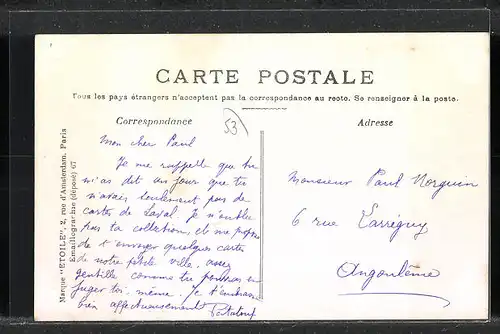 CARTE POSTALE
Tous les pays étrangers n'acceptent pas la correspondance au recto. Se renseigner à la poste.
Correspondance
53
Adresse
Mon cher Paul
Je me rappelle que tu
m'as dit un jour que tu
n'avais seulement pas de
cartes de Laval. Je n'oublie
pas ta collection, et me propose
de t'envoyer quelques cartes
de notre petite ville assez
gentille comme tu pourras en
juger toi-même. Je t'embrasse
bien affectueusement
Monsieur Paul Norguin
6 rue Larréguy
Angoulême
Marque "ETOILE", 2, rue d'Amsterdam, Paris
Emaillogravine (déposé) 67